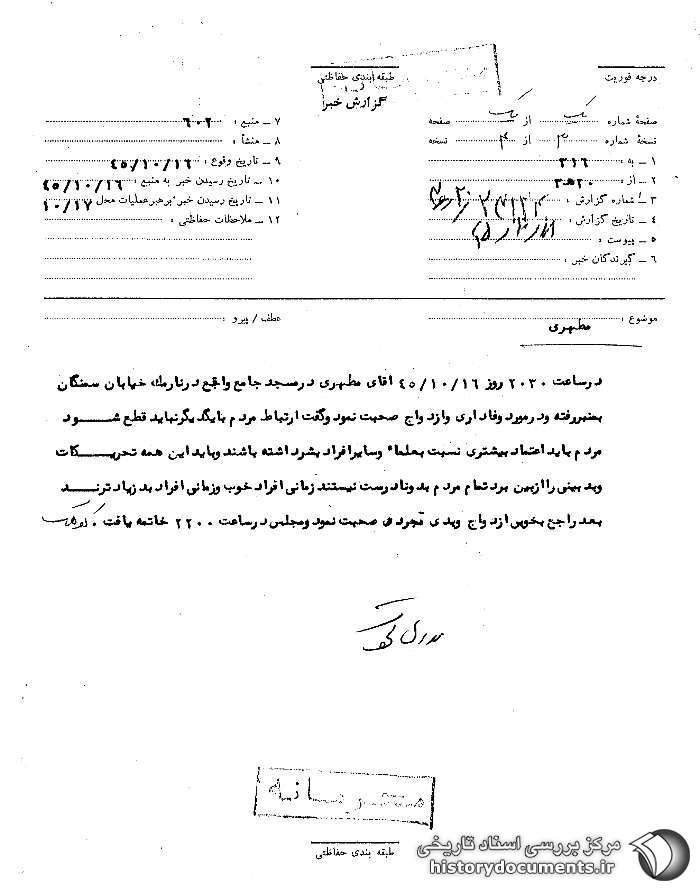 درجه فوریت
طبقه بندی حفاظتی
گزارش خبر
صفحهٔ شماره یک از یک صفحه
نسخهٔ شماره ۳ از ۴ نسخه
۱ ـ به : ۳۱۶
۲ ـ از : ۲۰ه۳
۳ ـ شماره گزارش :
۴ ـ تاریخ گزارش :
۵ ـ پیوست :
۶ ـ گیرندگان خبر :
۷ ـ منبع : ۶۰۲
۸ ـ منشأ :
۹ ـ تاریخ وقوع : ۴۵/۱۰/۱۶
۱۰ ـ تاریخ رسیدن خبر به منبع : ۴۵/۱۰/۱۶
۱۱ ـ تاریخ رسیدن خبر برهبر عملیات محل ۱۰/۱۷
۱۲ ـ ملاحظات حفاظتی :
موضوع : مطهری
عطف / پیرو :
در ساعت ۲۰۳۰ روز ۴۵/۱۰/۱۶ آقای مطهری در مسجد جامع واقع در نارمک خیابان سمنگان
بمنبر رفته و در مورد وفاداری و ازدواج صحبت نمود و گفت ارتباط مردم با یکدیگر نباید قطع شود
مردم باید اعتماد بیشتری نسبت بعلماء و سایر افراد بشر داشته باشند و باید این همه تحریکات
و بدبینی را از بین برد تمام مردم بد و نادرست نیستند زمانی افراد خوب و زمانی افراد بد زیادترند
بعد راجع بخوبی ازدواج و بدی تجرد صحبت نمود و مجلس در ساعت ۲۲۰۰ خاتمه یافت .
محرمانه
طبقه بندی حفاظتی
مرکز بررسی اسناد تاریخی
historydocuments.ir